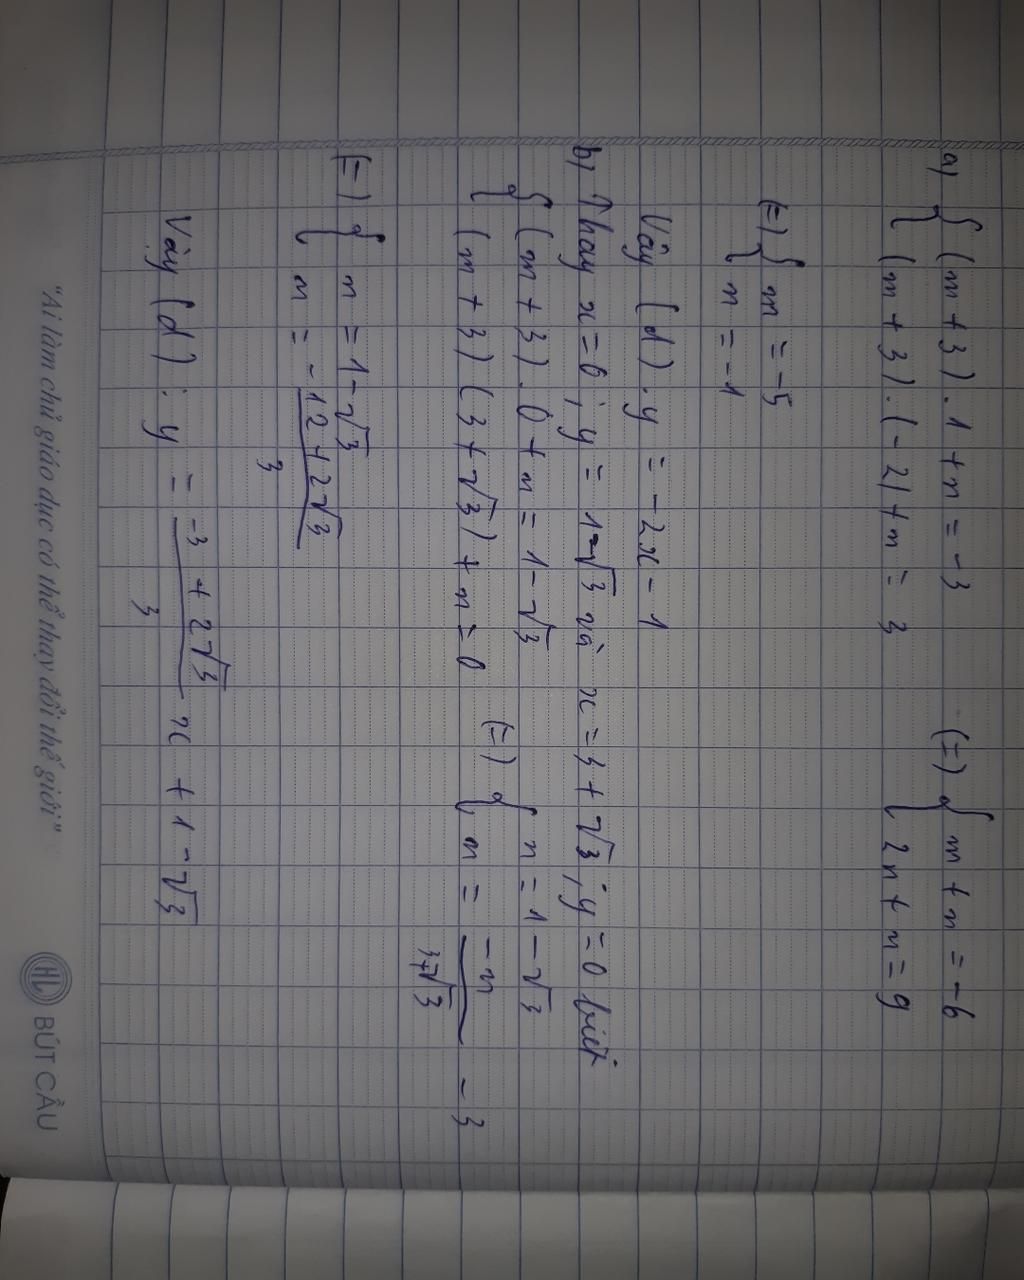 a) { (m + 3) . 1 + n = -3 (=) { m + n = -6
(m + 3) . (-2) + n = 3 2n + n = 9
(=) { m = -5
n = -1
Vậy (d) . y = -2x - 1
b) Thay x = 0 ; y = 1 - √3 và x = 3 + √3 ; y = 0 biết
{ (m + 3) . 0 + n = 1 - √3 (=) { n = 1 - √3
(m + 3) (3 + √3) + n = 0 m = -n / 3+√3 - 3
(=) { n = 1 - √3
m = -12 + 2√3 / 3
Vậy (d) : y = -3 + 2√3 / 3 x + 1 - √3
"Ai làm chủ giáo dục có thể thay đổi thế giới"
HL BÚT CẦU